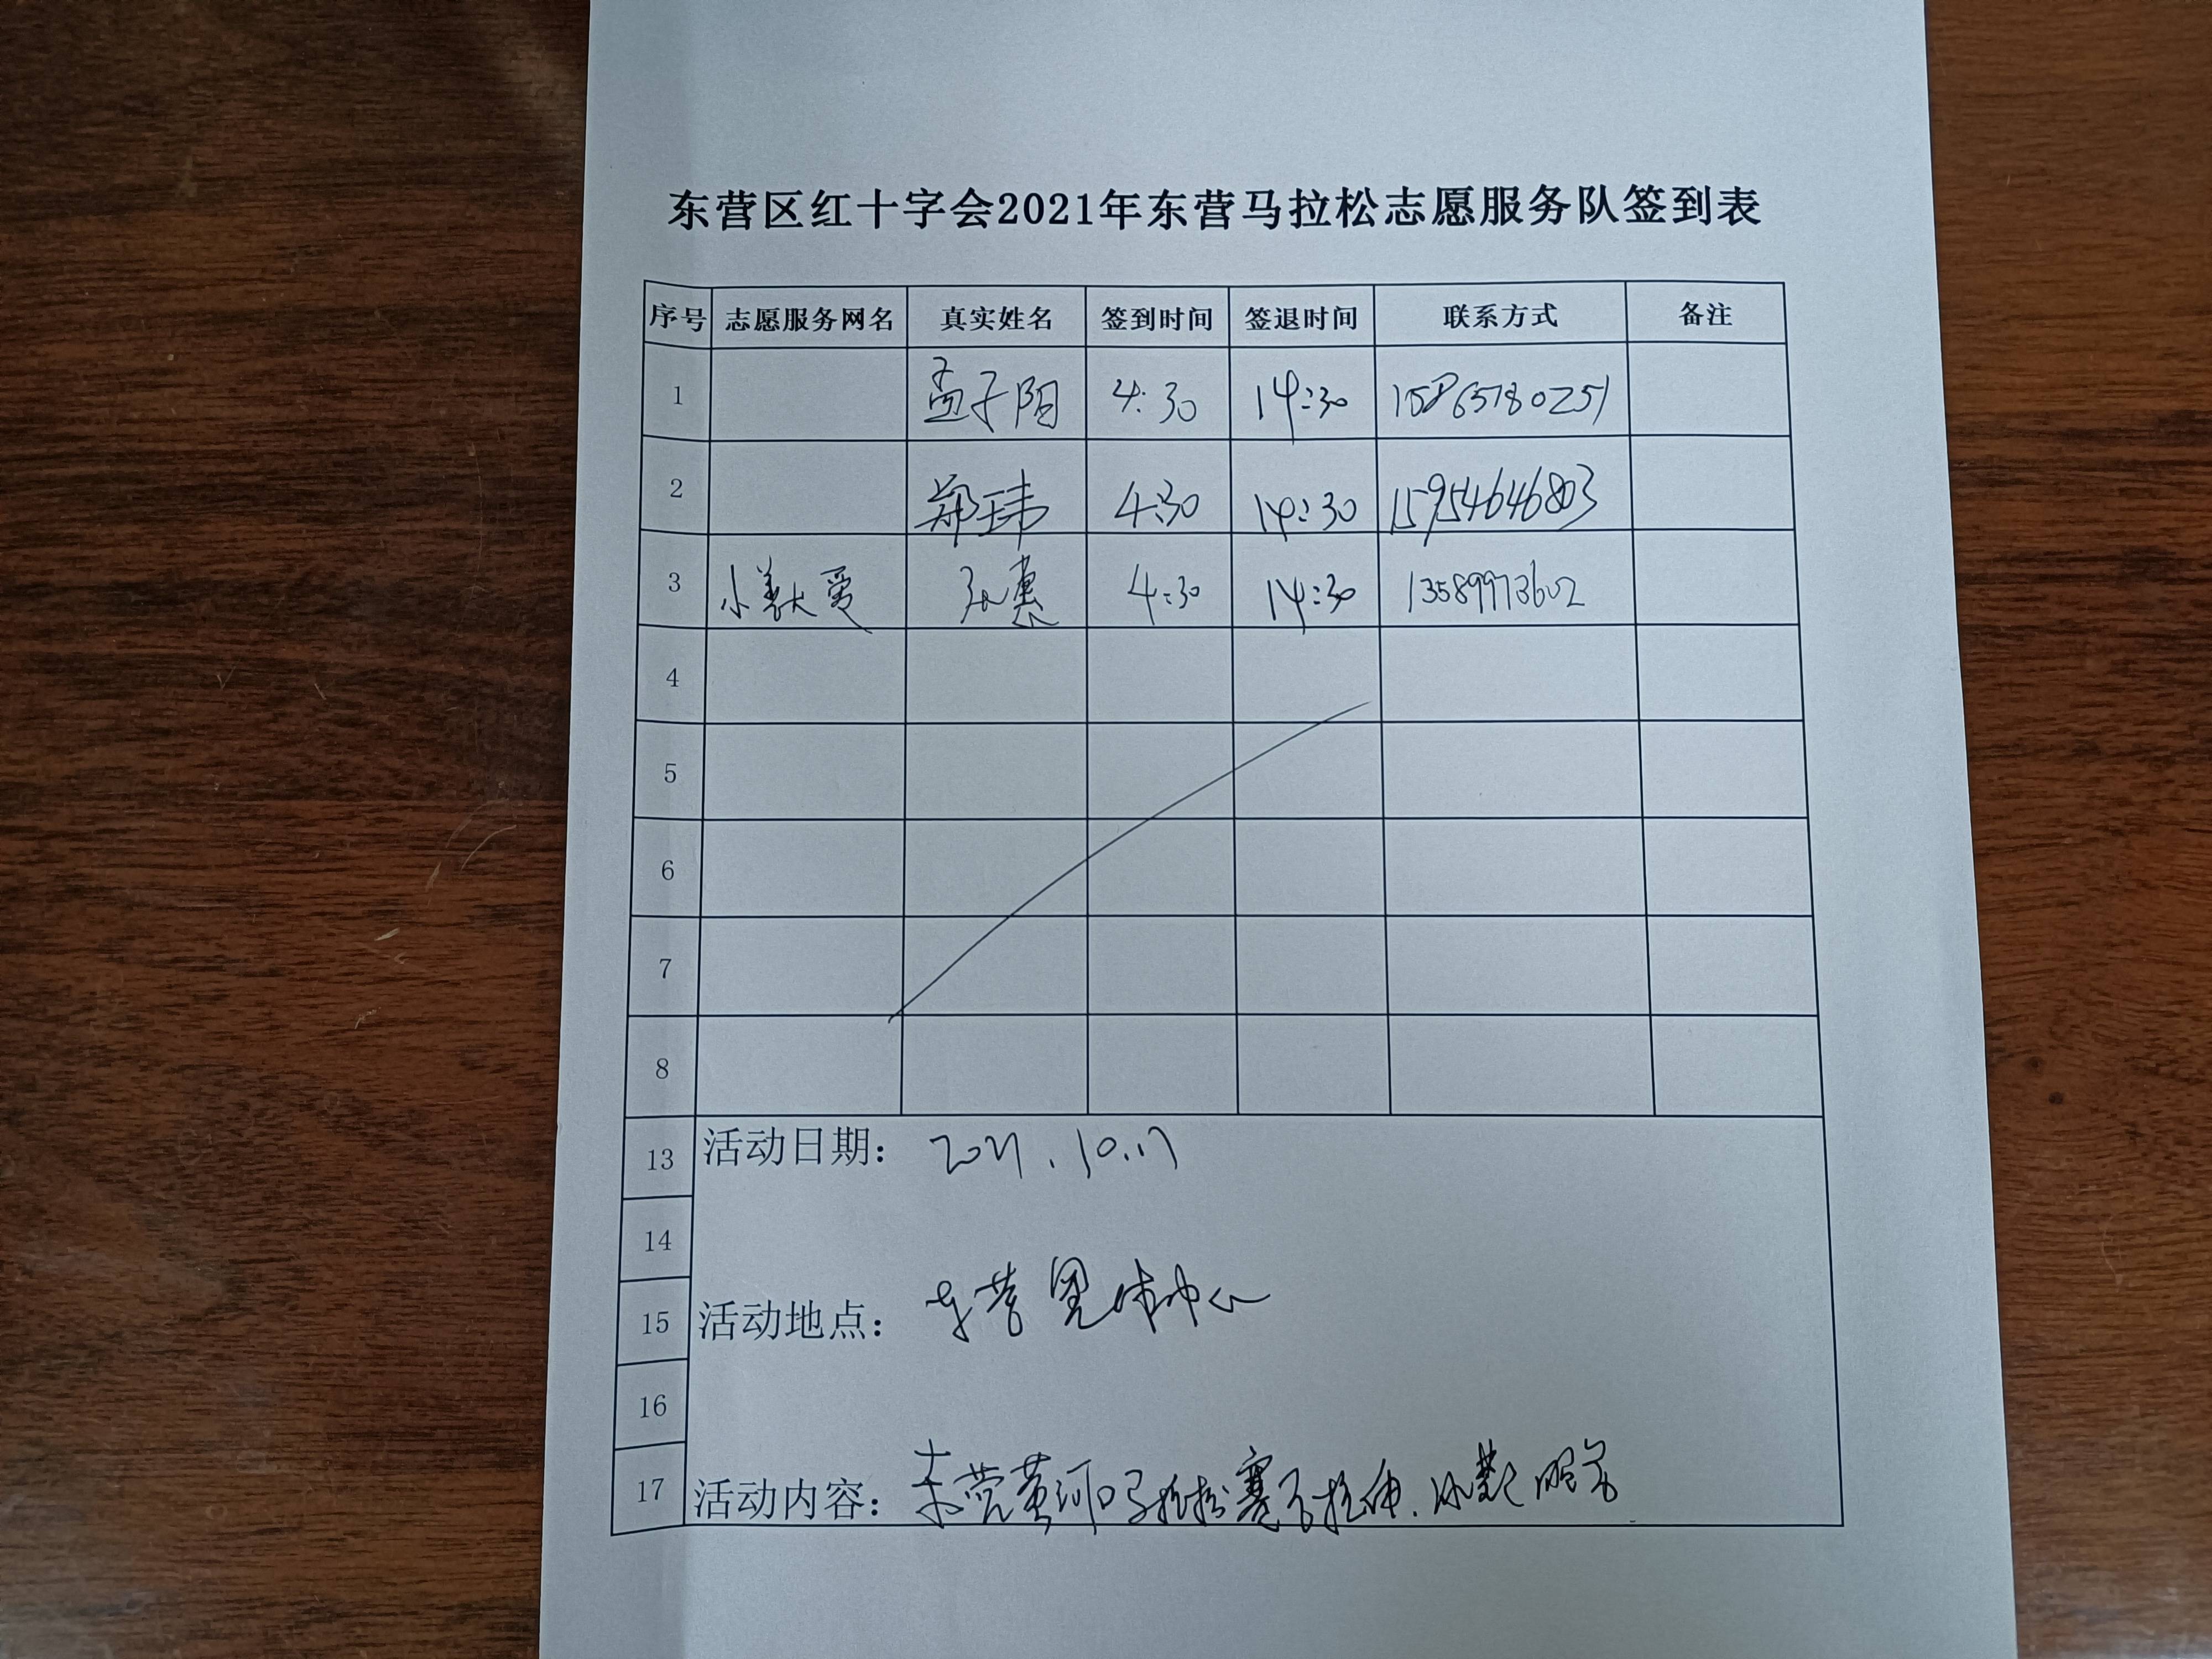 东营区红十字会2021年东营马拉松志愿服务队签到表
序号 志愿服务网名 真实姓名 签到时间 签退时间 联系方式 备注
1 孟子阳 4:30 14:30 15865780251
2 郑玮 4:30 14:30 15954646803
3 小善大爱 孙惠 4:30 14:30 13589973602
4
5
6
7
8
13 活动日期： 2021.10.17
14
15 活动地点： 东营 体中心
16
17 活动内容： 东营黄河口马拉松赛后拉伸.冰敷服务